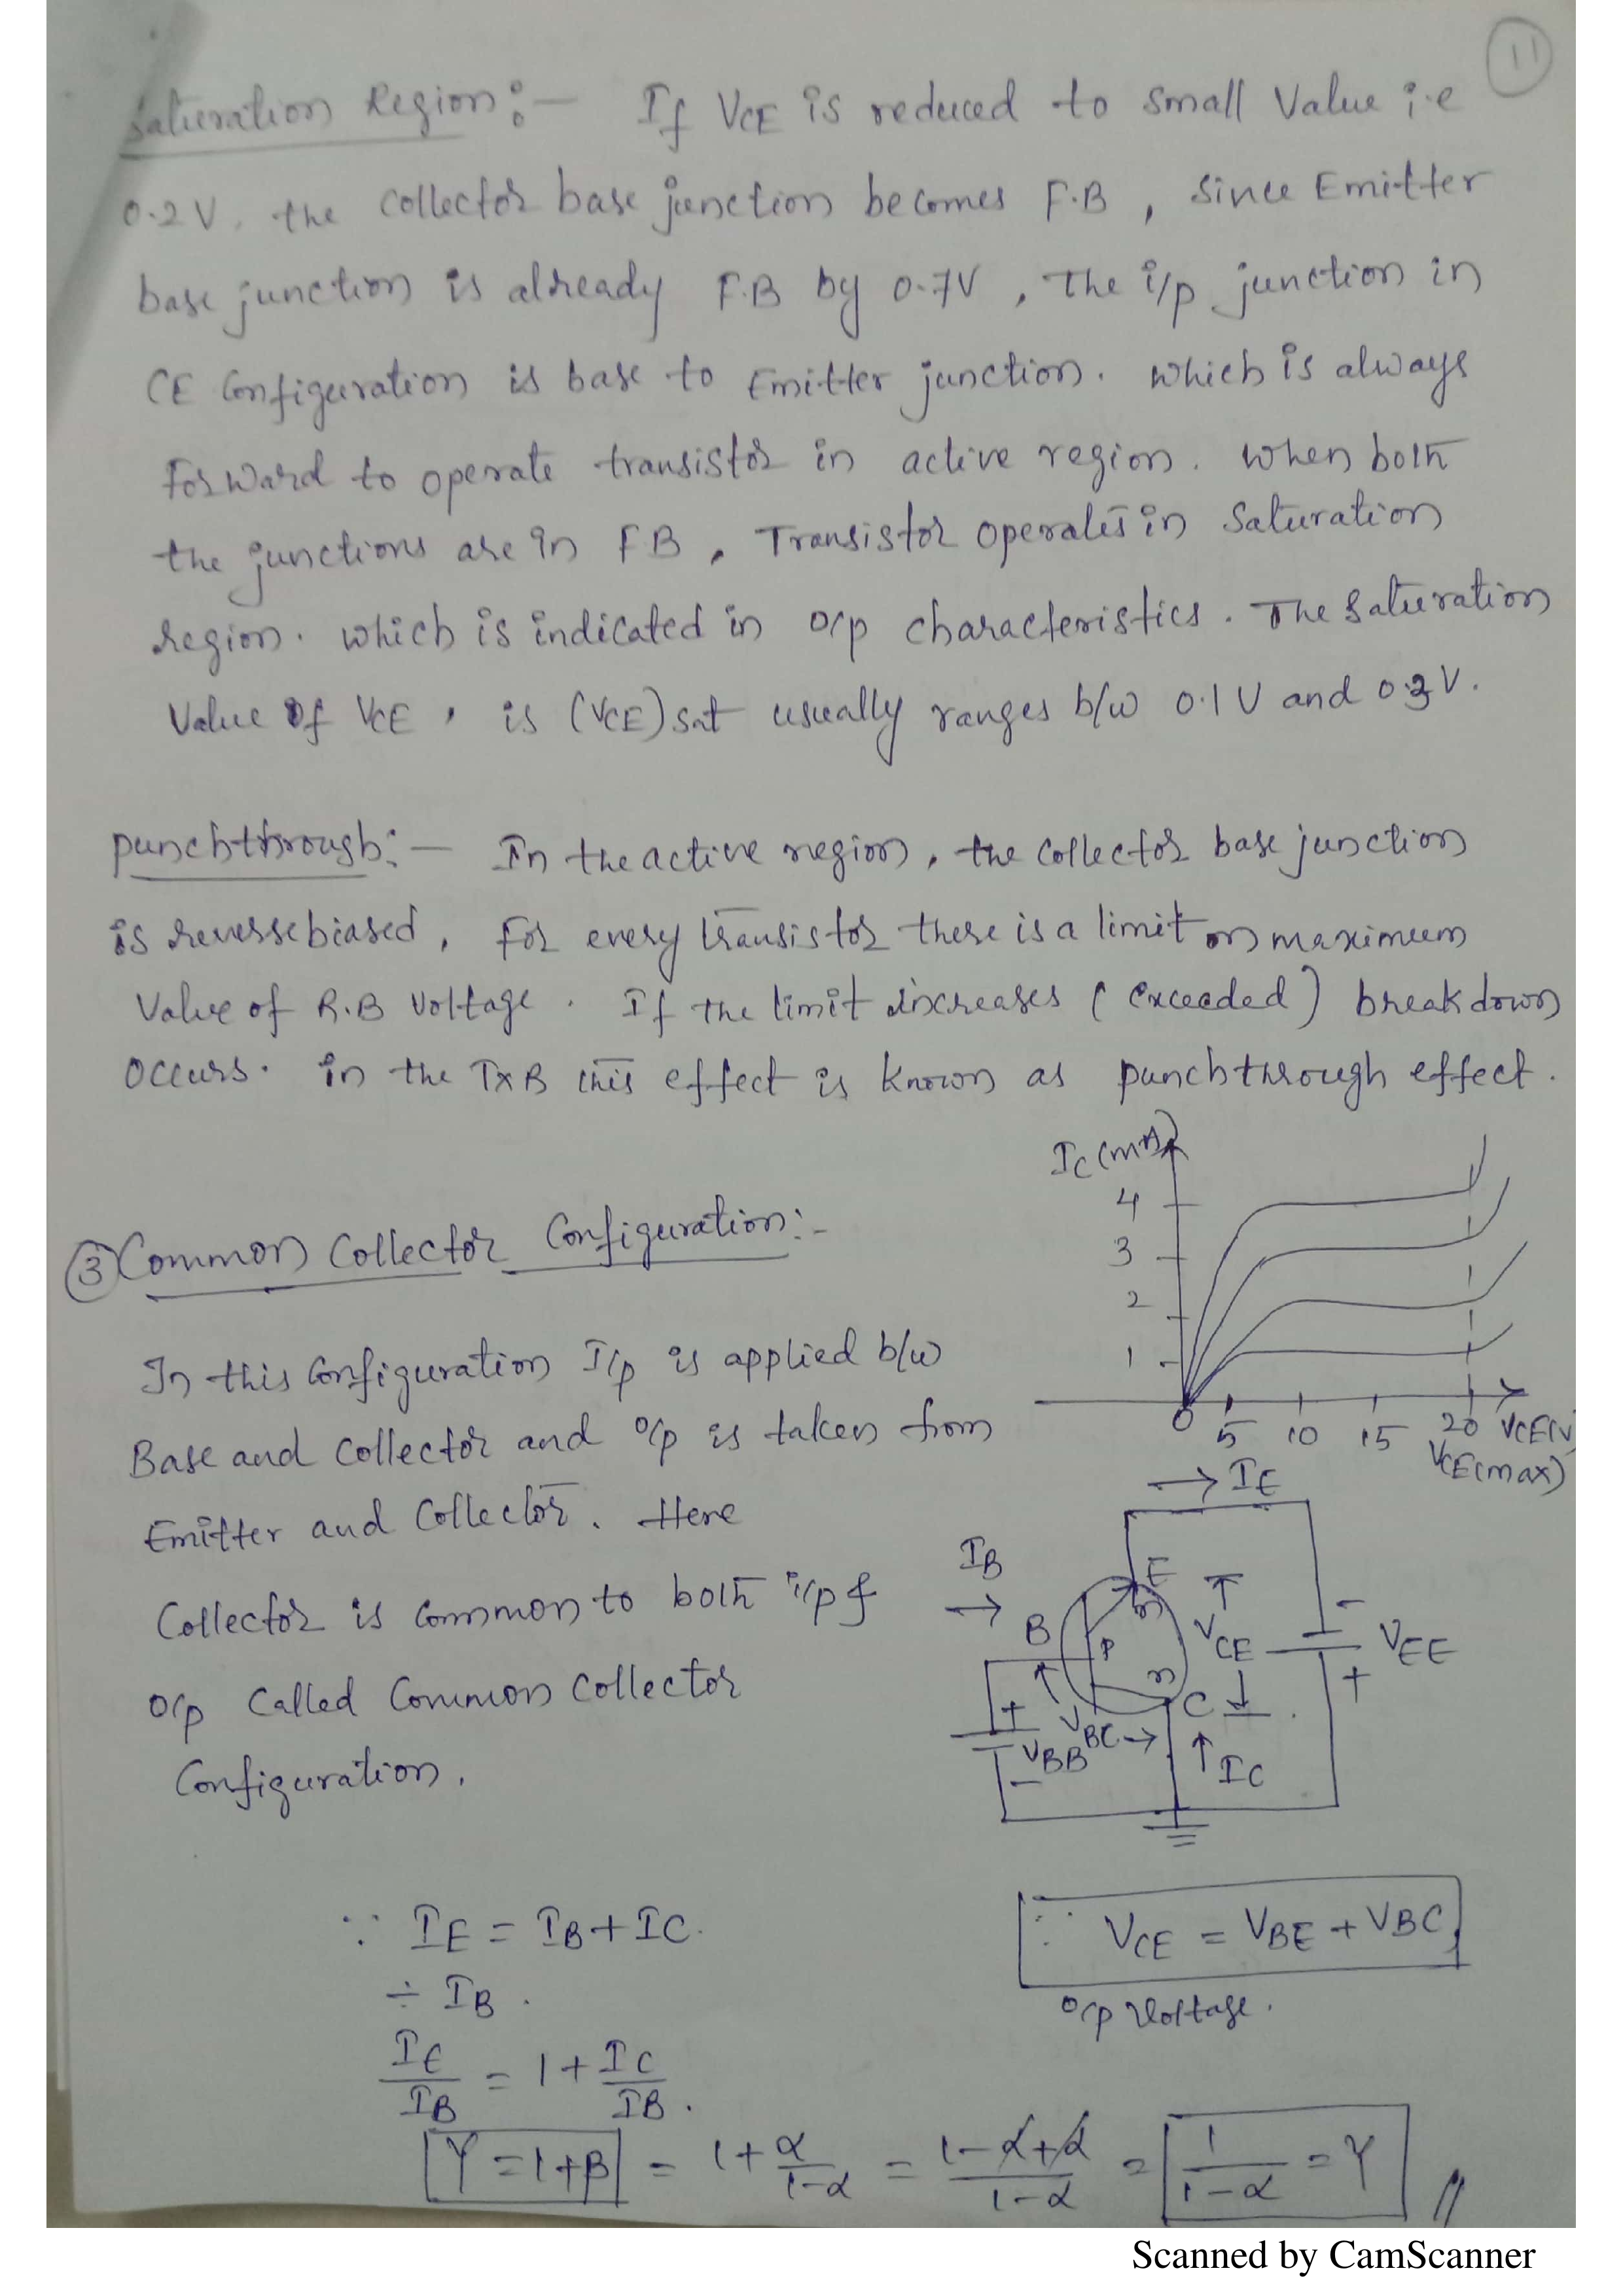 11
Saturation Region :- If VCE is reduced to small value i.e
0.2 V. the collector base junction becomes F.B , since Emitter
base junction is already F.B by 0.7V , The i/p junction in
CE Configuration is base to Emitter junction. which is always
forward to operate transistor in active region. when both
the junctions are in FB , Transistor operates in saturation
region. which is indicated in o/p characteristics. The saturation
value of VCE , is (VCE)sat usually ranges b/w 0.1 V and 0.3 V.
punchthrough :- In the active region, the collector base junction
is reverse biased, for every transistor there is a limit on maximum
value of R.B voltage . If the limit increases (exceeded) breakdown
occurs. in the TxB this effect is known as punchthrough effect.
IC (mA)
4
3
2
1
0 5 10 15 20 VCE(V)
VCE(max)
③ Common Collector Configuration:-
In this Configuration I/p is applied b/w
Base and collector and o/p is taken from
Emitter and Collector. Here
Collector is Common to both i/p &
o/p called Common collector
Configuration.
→ IE
IB
→
B
E
n
P
n
C
↑
VCE
↓
-
VEE
+
+
VBB
-
VBC →
↑ IC
∵ IE = IB + IC.
÷ IB .
IE/IB = 1 + IC/IB .
γ = 1+β = 1 + α/1-α = 1-α+α/1-α = 1/1-α = γ //
∵ VCE = VBE + VBC
o/p voltage.
Scanned by CamScanner